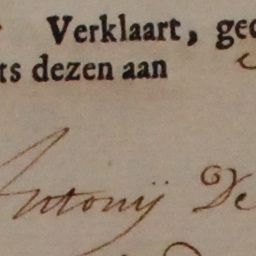 Verklaart, ged
ts dezen aan
Antonij De